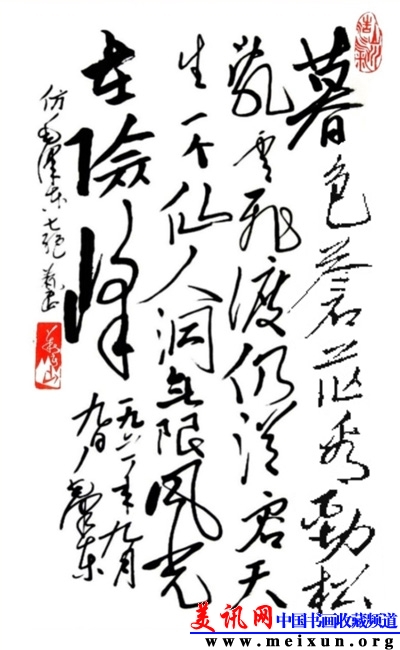 暮色蒼茫看劲松
亂雲飛渡仍從容天
生一个仙人洞無限風光
在險峰
一九六一年九月
九日
仿毛澤东七绝
美讯网 中国书画收藏频道
www.meixun.org